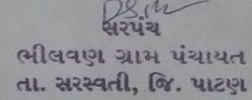 સરપંચ
ભીલવણ ગ્રામ પંચાયત
તા. સરસ્વતી, જિ. પાટણ